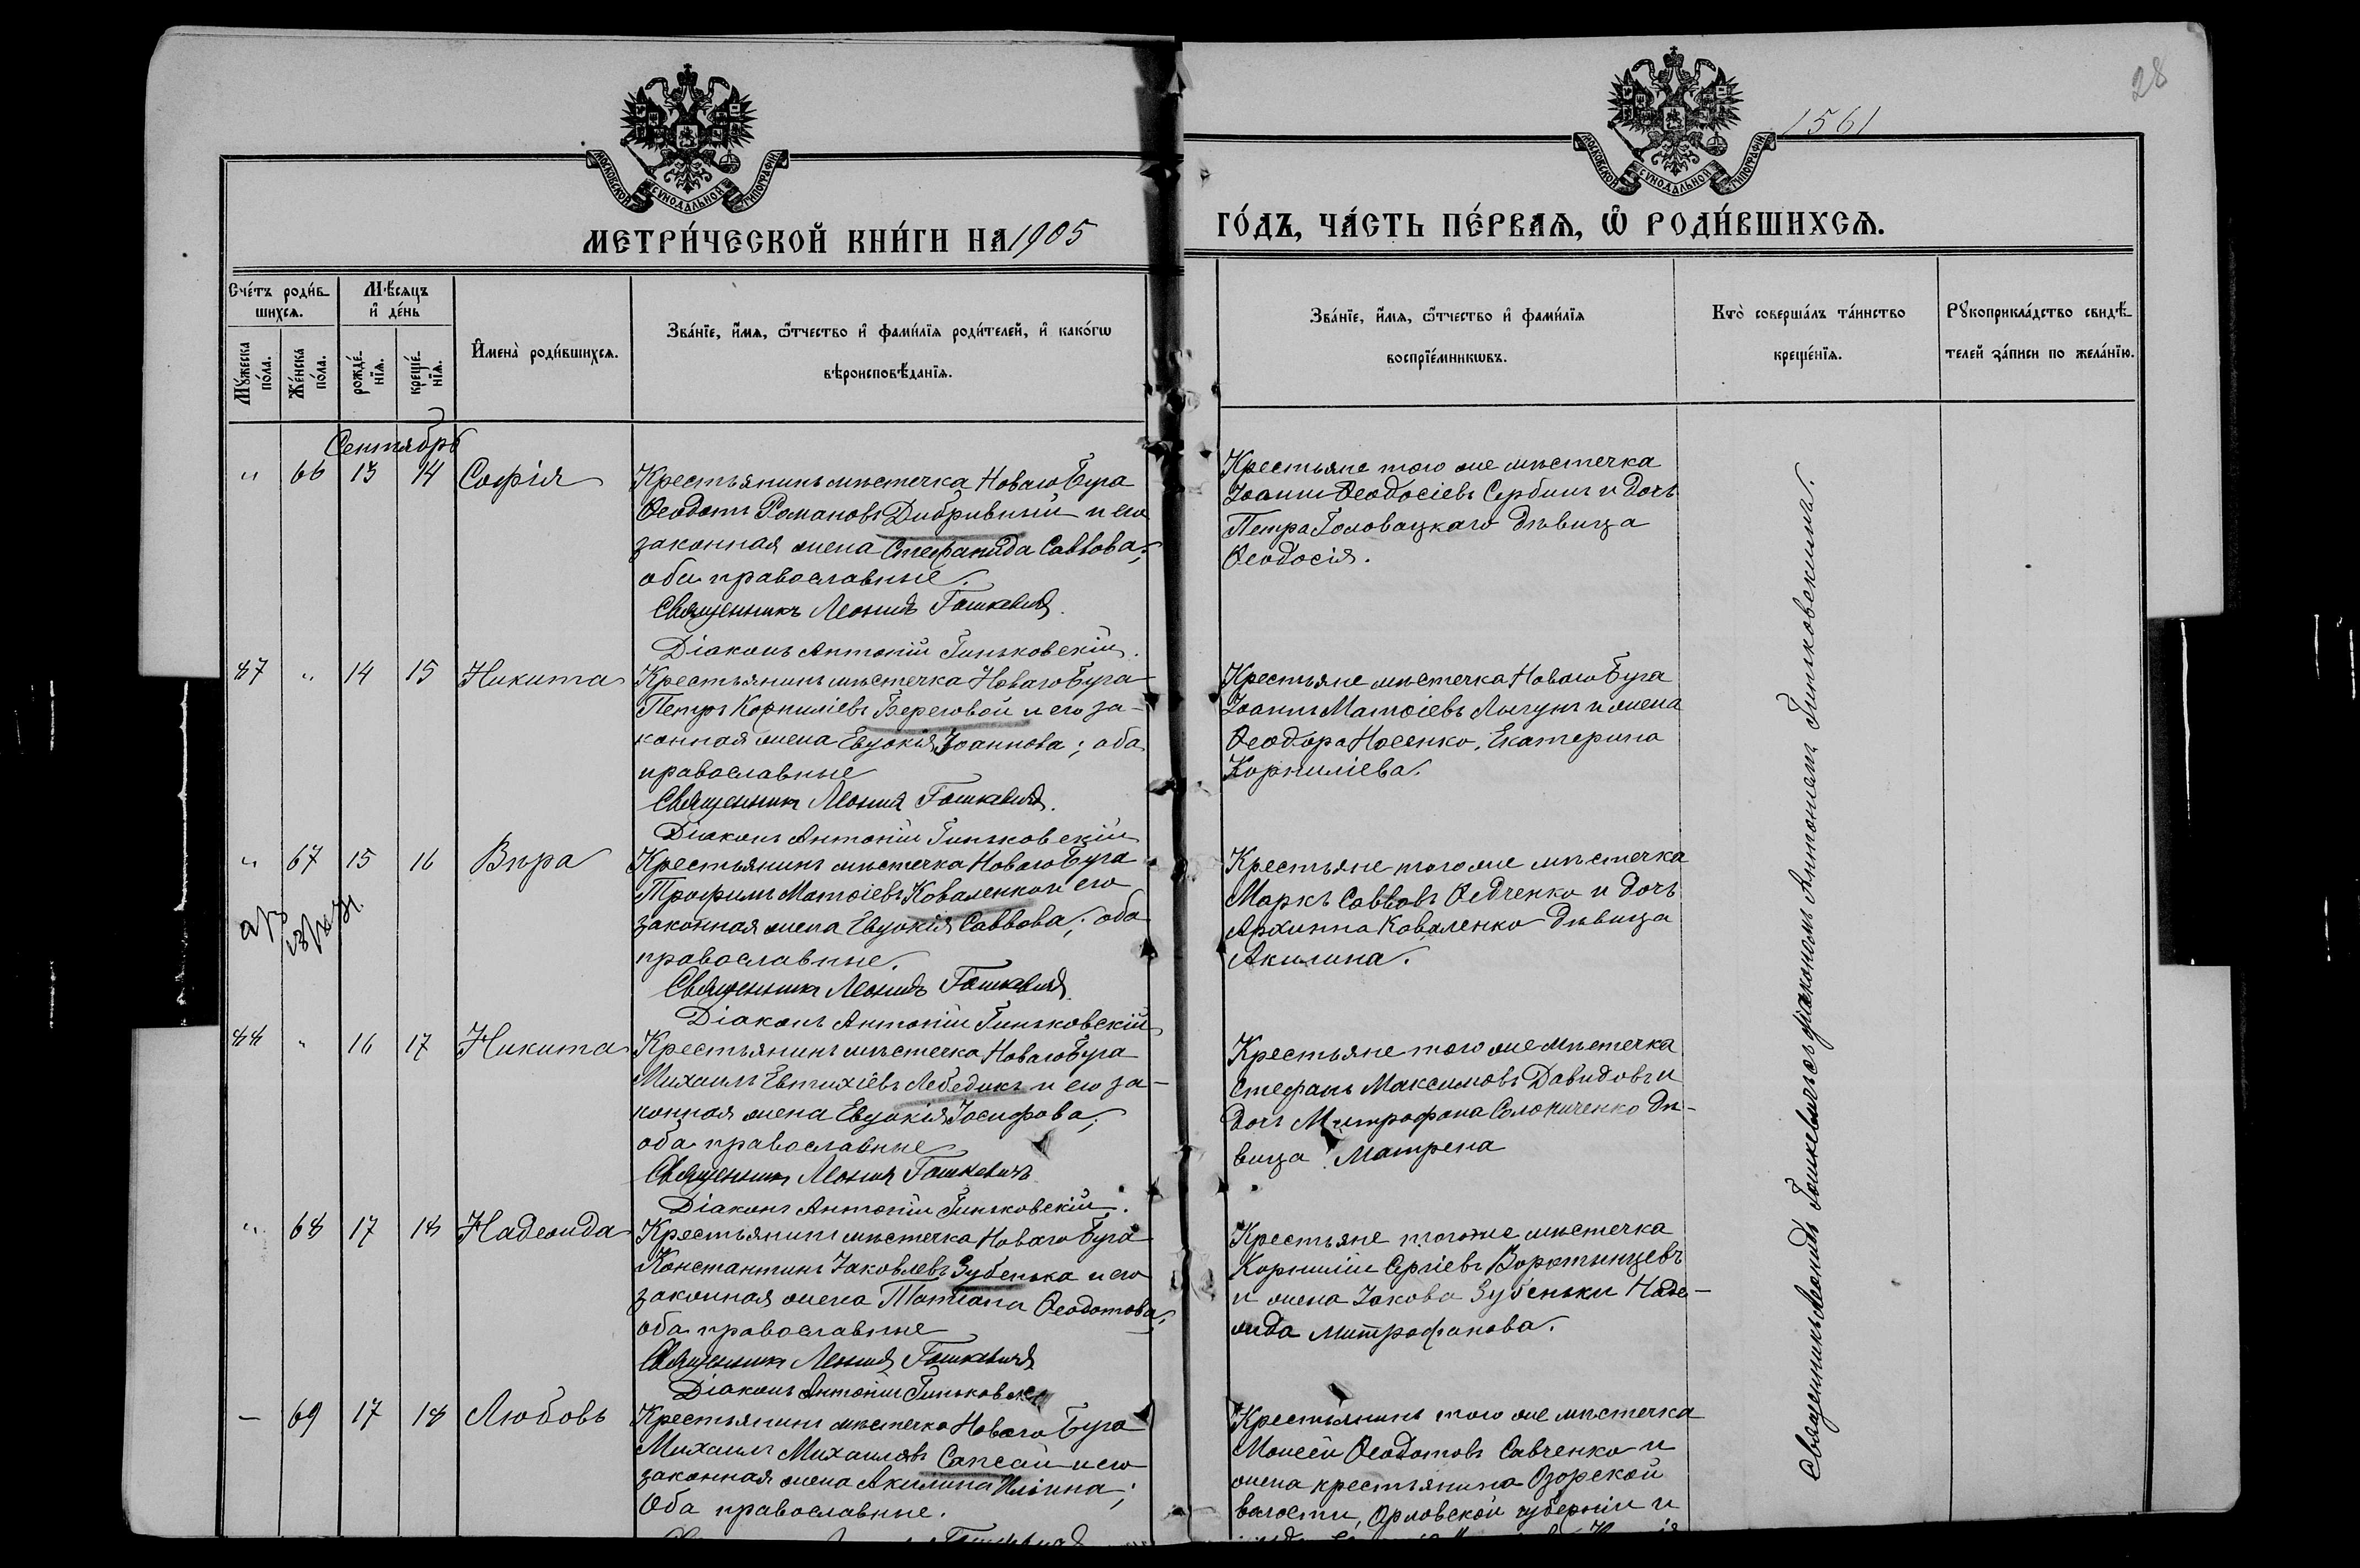 28
1561
МОСКОВСКОЙ СѴНОДАЛЬНОЙ ТИПОГРАФІИ
МОСКОВСКОЙ СѴНОДАЛЬНОЙ ТИПОГРАФІИ
МЕТРИ́ЧЕСКОЙ КНИ́ГИ НА 1905 ГО́ДЪ, ЧА́СТЬ ПЕ́РВАѦ, Ѡ҆ РОДИ́ВШИХСѦ.
Сче́тъ роди́в-
шихсѧ.
Мꙋ́жеска
по́ла.
Же́нска
по́ла.
Мѣ́сѧцъ
и҆ де́нь
рожде́-
нїѧ.
креще́-
нїѧ.
И҆мена̀ роди́вшихсѧ.
Зва́нїе, и҆́мѧ, ѻ҆́тчество и҆ фами́лїѧ роди́телей, и҆ како́гѡ
вѣроисповѣ́данїѧ.
Зва́нїе, и҆́мѧ, ѻ҆́тчество и҆ фами́лїѧ
воспрїе́мникѡвъ.
Кто̀ соверша́лъ та́инство
креще́нїѧ.
Рꙋкоприкла́дство свидѣ́-
телей за́писи по жела́нїю.
Сентябрь
" 66 13 14 Софія
Крестьянинъ мѣстечка Новаго Буга
Ѳеодотъ Романовъ Дибривный и его
законная жена Стефанида Саввова;
оба православные.
Священникъ Леонидъ Гошкевичъ.
Діаконъ Антоній Гиньковскій.
Крестьяне того же мѣстечка
Іоаннъ Ѳеодосіевъ Сербинъ и дочь
Петра Головацкаго дѣвица
Ѳеодосія.
87 " 14 15 Никита
Крестьянинъ мѣстечка Новаго Буга
Петръ Корниліевъ Береговой и его за-
конная жена Евдокія Іоаннова; оба
православные
Священникъ Леонидъ Гошкевичъ.
Діаконъ Антоній Гиньковскій
Крестьяне мѣстечка Новаго Буга
Іоаннъ Матѳіевъ Лыгунъ и жена
Ѳеодора Носенко, Екатерина
Корниліева.
" 67 15 16 Вѣра
Крестьянинъ мѣстечка Новаго Буга
Трофимъ Матѳіевъ Коваленко и его
законная жена Евдокія Саввова; оба
православные.
Священникъ Леонидъ Гошкевичъ.
Діаконъ Антоній Гиньковскій
Крестьяне того же мѣстечка
Маркъ Саввовъ Ѳедченко и дочь
Архиппа Коваленко дѣвица
Акилина.
88 " 16 17 Никита
Крестьянинъ мѣстечка Новаго Буга
Михаилъ Евтихіевъ Лебедикъ и его за-
конная жена Евдокія Іосифова;
оба православные
Священникъ Леонидъ Гошкевичъ
Діаконъ Антоній Гиньковскій.
Крестьяне того же мѣстечка
Стефанъ Максимовъ Давидовъ и
дочь Митрофана Солониченко дѣ-
вица Матрена
" 68 17 18 Надежда
Крестьянинъ мѣстечка Новаго Буга
Константинъ Іаковлевъ Зубенька и его
законная жена Татіана Ѳеодотова;
оба православные
Священникъ Леонидъ Гошкевичъ
Діаконъ Антоній Гиньковскій
Крестьяне того же мѣстечка
Корнилій Сергіевъ Воротынцевъ
и жена Іакова Зубеньки Наде-
жда Митрофанова.
— 69 17 18 Любовь
Крестьянинъ мѣстечка Новаго Буга
Михаилъ Михаиловъ Сапсай и его
законная жена Акилина Ильина;
Оба православные.
Крестьянинъ того же мѣстечка
Моисей Ѳеодотовъ Савченко и
жена крестьянина Озорской
волости, Орловской губерніи и
Священникъ Леонидъ Гошкевичъ съ діакономъ Антоніемъ Гиньковскимъ.